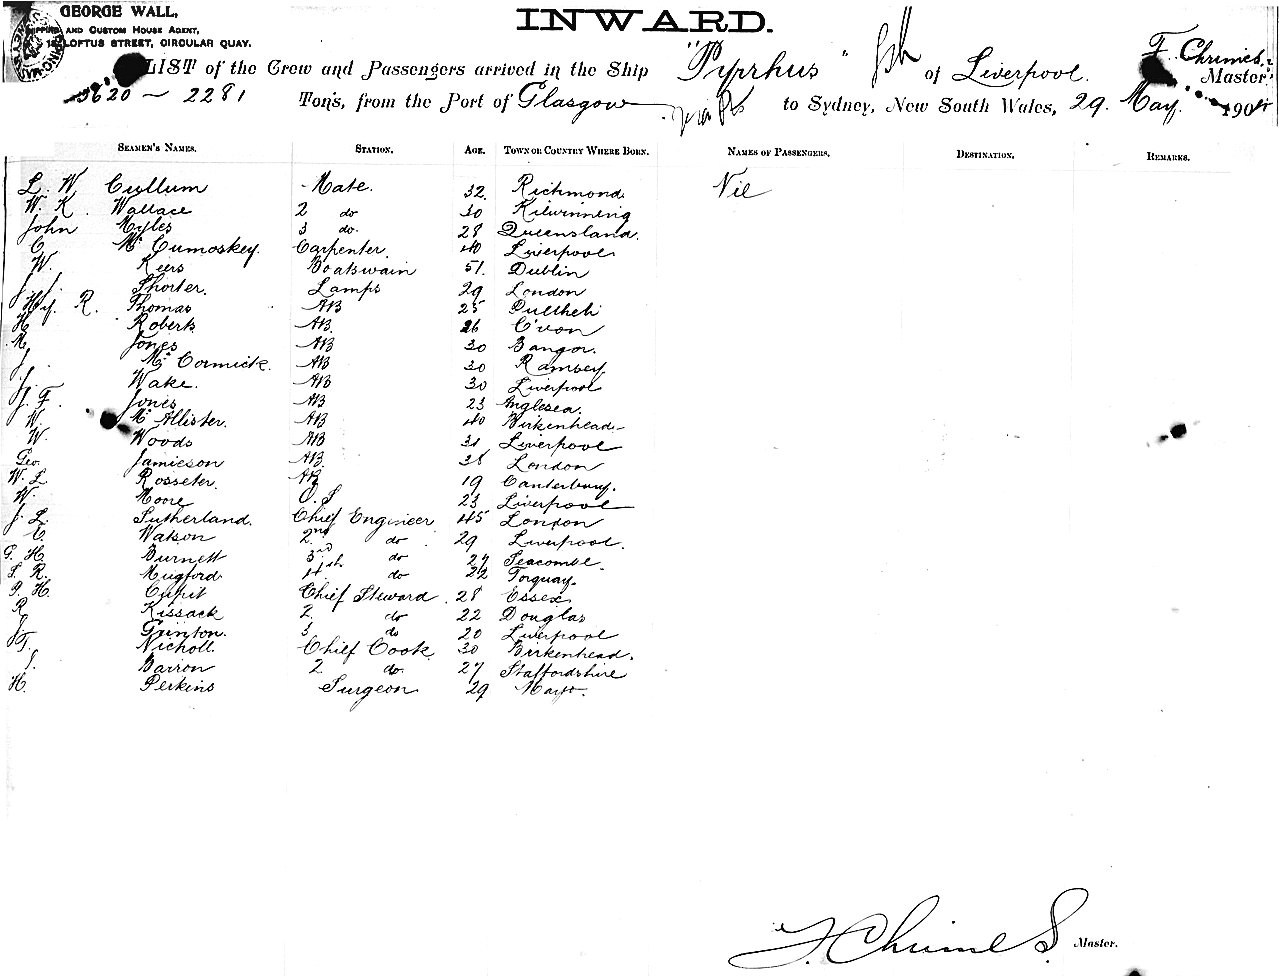 GEORGE WALL,
AND CUSTOM HOUSE AGENT,
LOFTUS STREET, CIRCULAR QUAY.
INWARD.
LIST of the Crew and Passengers arrived in the Ship "Pyrrhus" of Liverpool. F. Chrimes, Master,
3620 — 2281 Tons, from the Port of Glasgow to Sydney, New South Wales, 29. May. 190
SEAMEN'S NAMES. STATION. AGE. TOWN OR COUNTRY WHERE BORN. NAMES OF PASSENGERS. DESTINATION. REMARKS.
L. W. Cullum Mate. 32. Richmond Nil
W. K. Wallace 2 do 30 Kilwinning
John Myles 3 do. 28 Queensland.
C. McCumoskey. Carpenter. 40 Liverpool
W. Keers Boatswain 51. Dublin
J. Shorter. Lamps 29 London
Hy. R. Thomas AB 25 Pullheli
H. Roberts AB. 26 C'von
M. Jones AB 30 Bangor.
J. McCormick. AB 30 Ramsey.
J. Wake. AB 30 Liverpool
J. F. Jones AB 23 Anglesea.
W. McAllister. AB 40 Birkenhead
W. Woods AB 31 Liverpool
Geo. Jamieson AB. 28 London
W. L. Rosseter. AB 19 Canterbury.
W. Moore O.S 23 Liverpool
J. L. Sutherland. Chief Engineer 45 London
C. Watson 2nd do 29 Liverpool.
G. H. Burnett 3rd do 27 Seacombe.
S. R. Mugford 4th do 22 Torquay.
P. H. Cupit Chief Steward. 28 Essex
R. Kissack 2. do 22 Douglas
J. Grinton. 3 do 20 Liverpool
T. Nicholl. Chief Cook. 30 Birkenhead.
J. Barron 2 do. 27 Staffordshire
H. Perkins Surgeon 29 Mayo.
F. Chrimes Master.